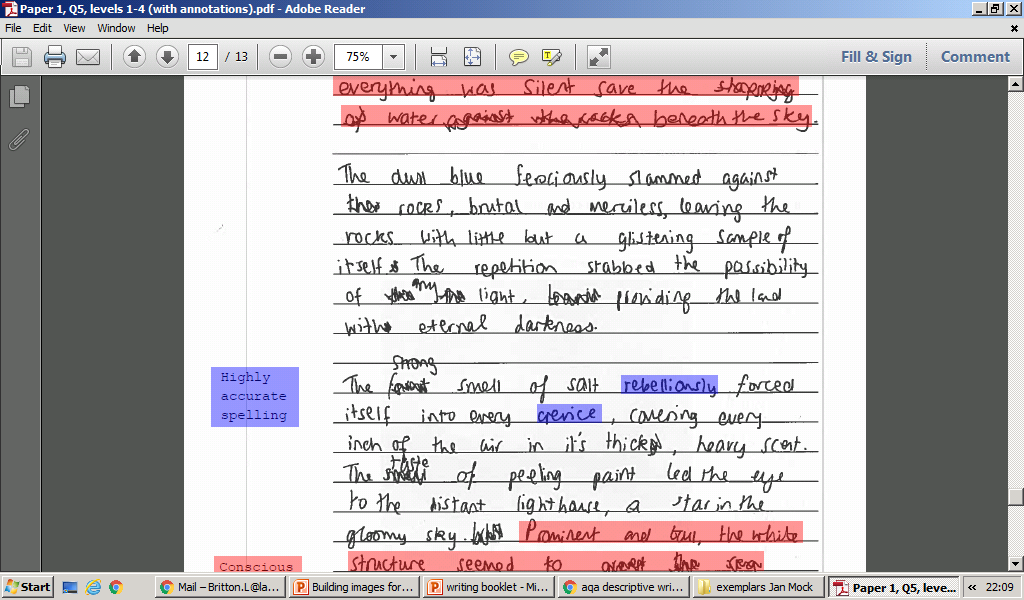 Paper 1, Q5, levels 1-4 (with annotations).pdf - Adobe Reader
File Edit View Window Help
12 / 13 75% Fill & Sign Comment
everything was silent save the
of water against the rocks beneath the sky.
The dull blue ferociously slammed against
the rocks, brutal and merciless, leaving the
rocks with little but a glistening sample of
itself. The repetition stabbed the possibility
of any light, providing the land
with eternal darkness.
strong
The smell of salt rebelliously forced
Highly
accurate
spelling
itself into every crevice, covering every
inch of the air in it's thick, heavy scent.
taste
The of peeling paint led the eye
to the distant lighthouse, a star in the
gloomy sky. Prominent and tall, the white
Conscious
structure seemed to the
Start Mail – Britton.L@la... Building images for... writing booklet - Mi... aqa descriptive wri... exemplars Jan Mock Paper 1, Q5, leve... « 22:09